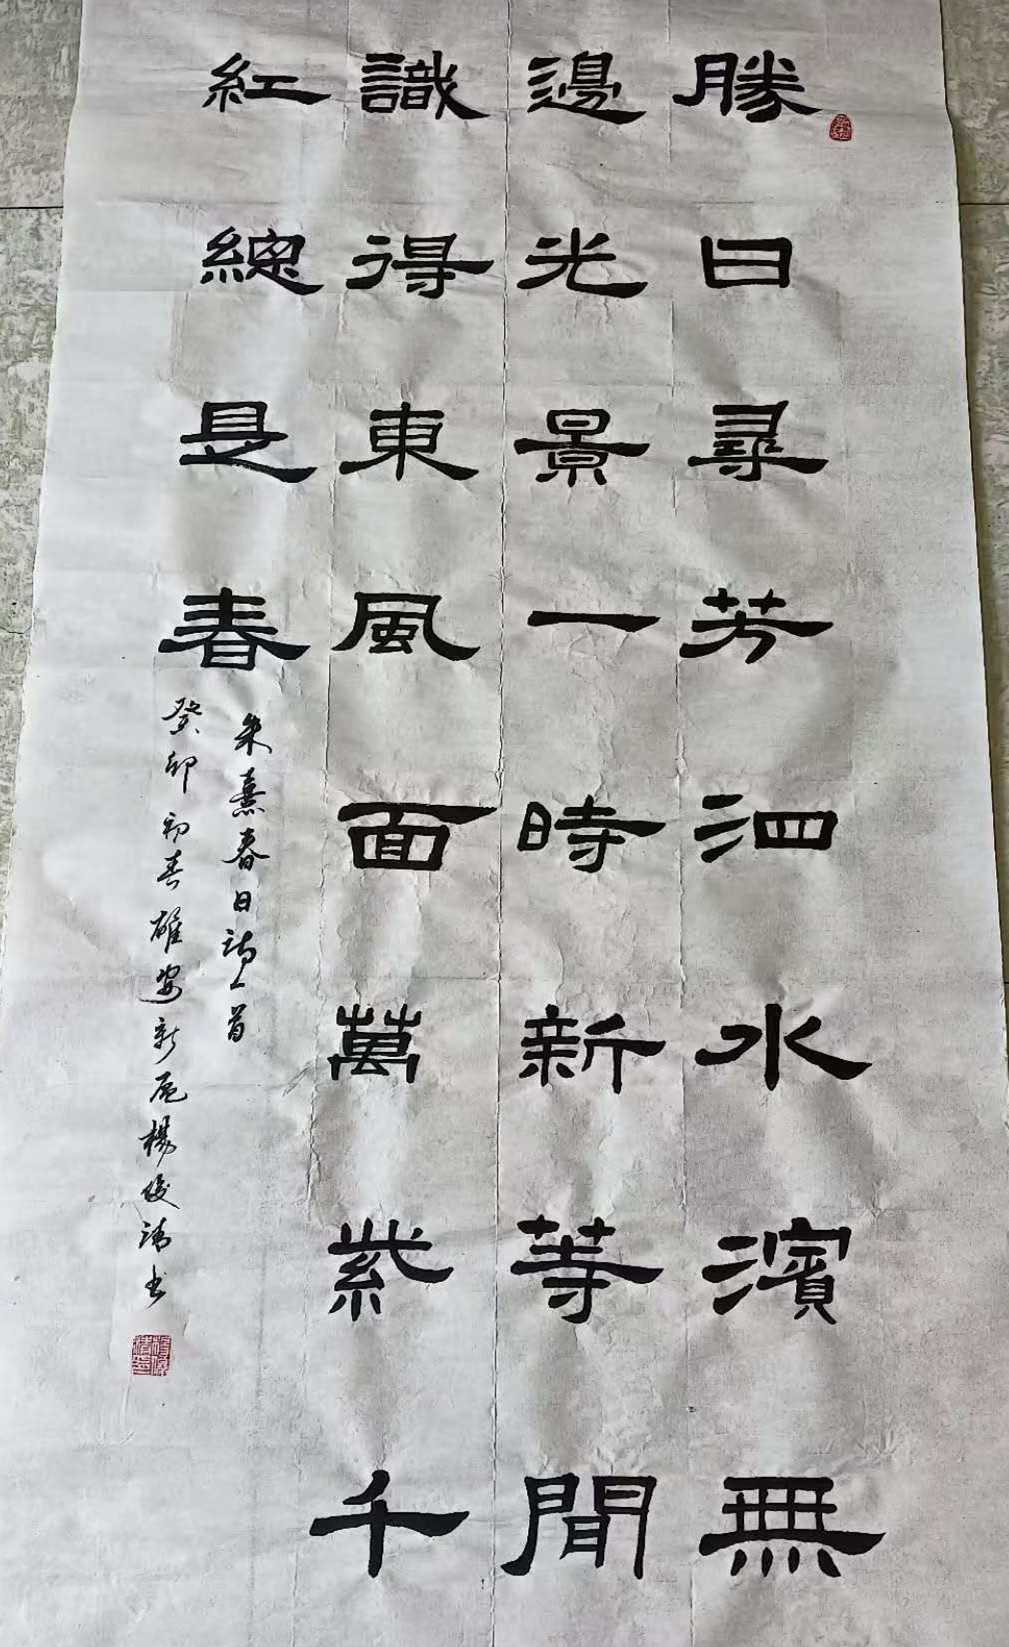 勝日尋芳泗水濱無
邊光景一時新等閒
識得東風面萬紫千
紅總是春
朱熹春日詩一首
癸卯初春雄安新區楊俊濤書